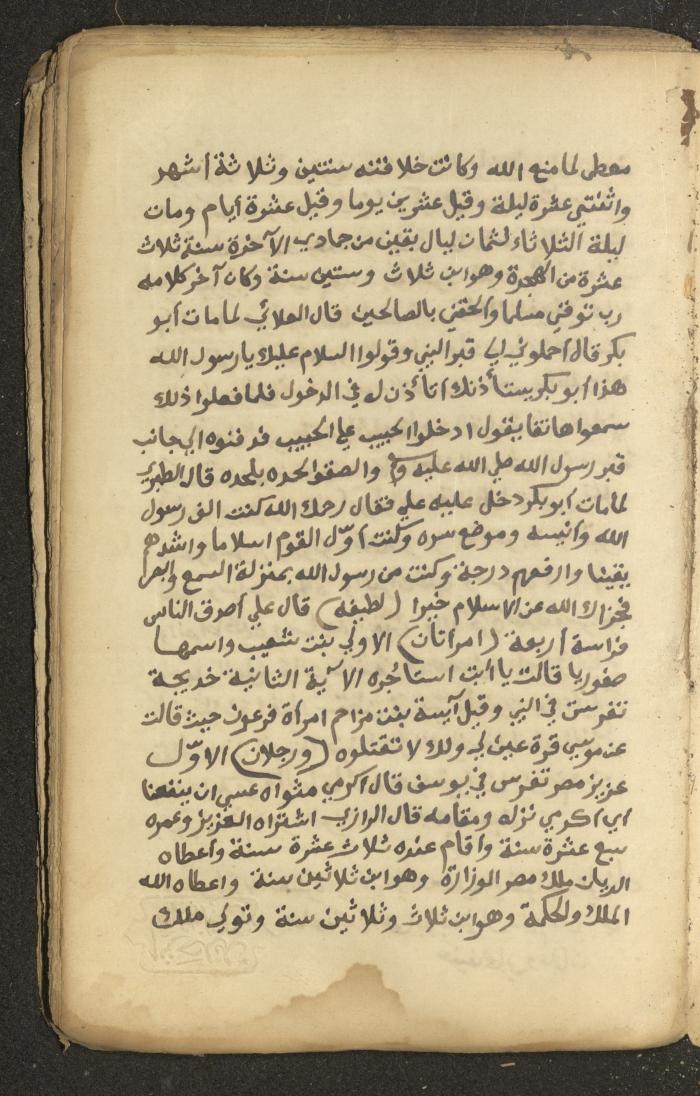 معطى لما منع الله وكانت خلافته سنتين وثلاثة أشهر
واثنتي عشرة ليلة وقيل عشرين يوما وقيل عشرة أيام ومات
ليلة الثلاثاء لثمان ليال بقين من جمادي الآخرة سنة ثلاث
عشرة من الهجرة وهو ابن ثلاث وستين سنة وكان آخر كلامه
رب توفني مسلما والحقني بالصالحين قال العلائي لما مات أبو
بكر قال احملوني الي قبر النبي وقولوا السلام عليك يا رسول الله
هذا أبو بكر يستأذنك أتأذن له في الدخول فلما فعلوا ذلك
سمعوا هاتفا يقول ادخلوا الحبيب علي الحبيب فدفنوه الي جانب
قبر رسول الله صلي الله عليه والصقوا لحده بلحده قال الطبري
لما مات أبو بكر دخل عليه علي فقال رحمك الله كنت الف رسول
الله وأنيسه وموضع سره وكنت أوّل القوم اسلاما واشدهم
يقينا وارفعهم درجة وكنت من رسول الله بمنزلة السمع والبصر
فجزاك الله عن الاسلام خيرا (لطيفه) قال علي أصدق الناس
فراسة أربعة (امرأتان) الاولي بنت شعيب واسمها
صفوريا قالت يا أبت استأجره الآية الثانية خديجة
تفرست في النبي وقيل آسية بنت مزاحم امرأة فرعون حيث قالت
عن موسي قرة عين لي ولك لا تقتلوه (ورجلان) الاوّل
عزيز مصر تفرس في يوسف قال اكرمي مثواه عسي ان ينفعنا
أي اكرمي نزله ومقامه قال الرازي اشتراه العزيز وعمره
سبع عشرة سنة وأقام عنده ثلاث عشرة سنة وأعطاه
الريان ملك مصر الوزارة وهو ابن ثلاثين سنة واعطاه الله
الملك والحكمة وهو ابن ثلاث وثلاثين سنة وتولي ملك